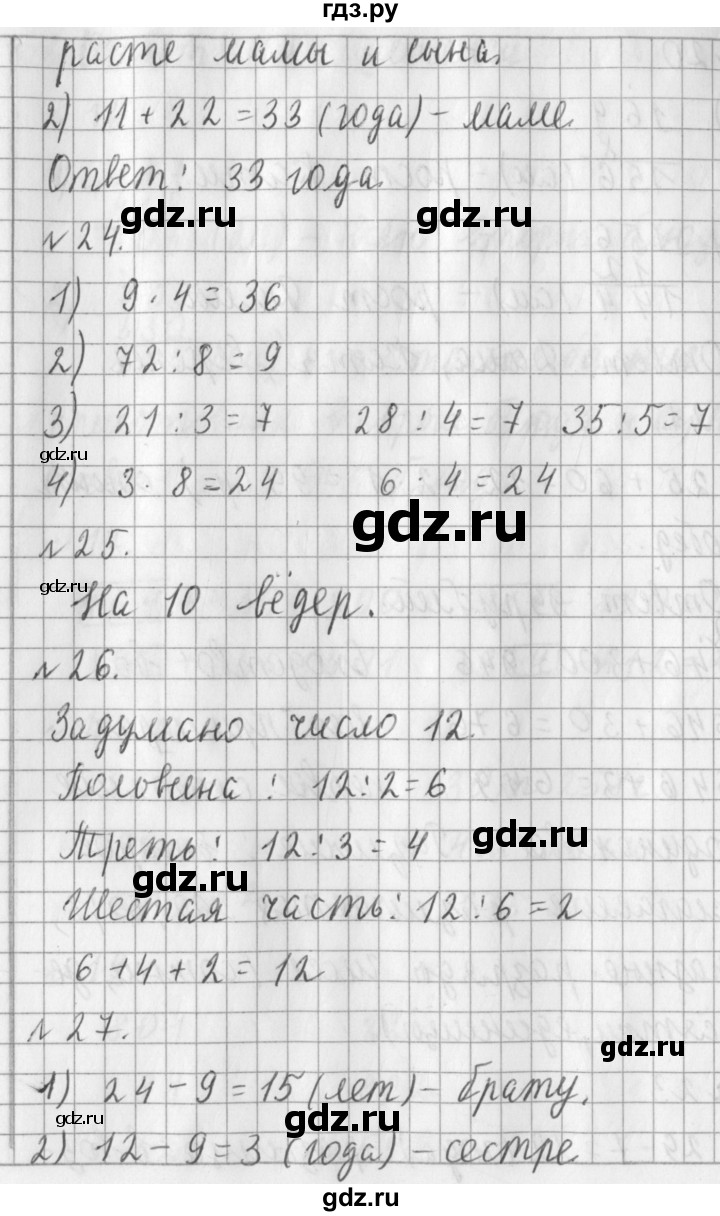 гдз.ру
расте мамы и сына.
2) 11 + 22 = 33 (года) - маме.
Ответ: 33 года.
gdz.ru gdz.ru
№ 24.
1) 9 · 4 = 36
2) 72 : 8 = 9
3) 21 : 3 = 7 28 : 4 = 7 35 : 5 = 7
gdz.ru
4) 3 · 8 = 24 6 · 4 = 24
gdz.ru
№ 25.
gdz.ru
На 10 вёдер.
№ 26.
Задумано число 12.
Половина : 12 : 2 = 6
gdz.ru
Треть : 12 : 3 = 4
gdz.ru
Шестая часть : 12 : 6 = 2
6 + 4 + 2 = 12
№ 27.
gdz.ru
1) 24 - 9 = 15 (лет) - брату.
gdz.ru
2) 12 - 9 = 3 (года) - сестре.
gdz.ru